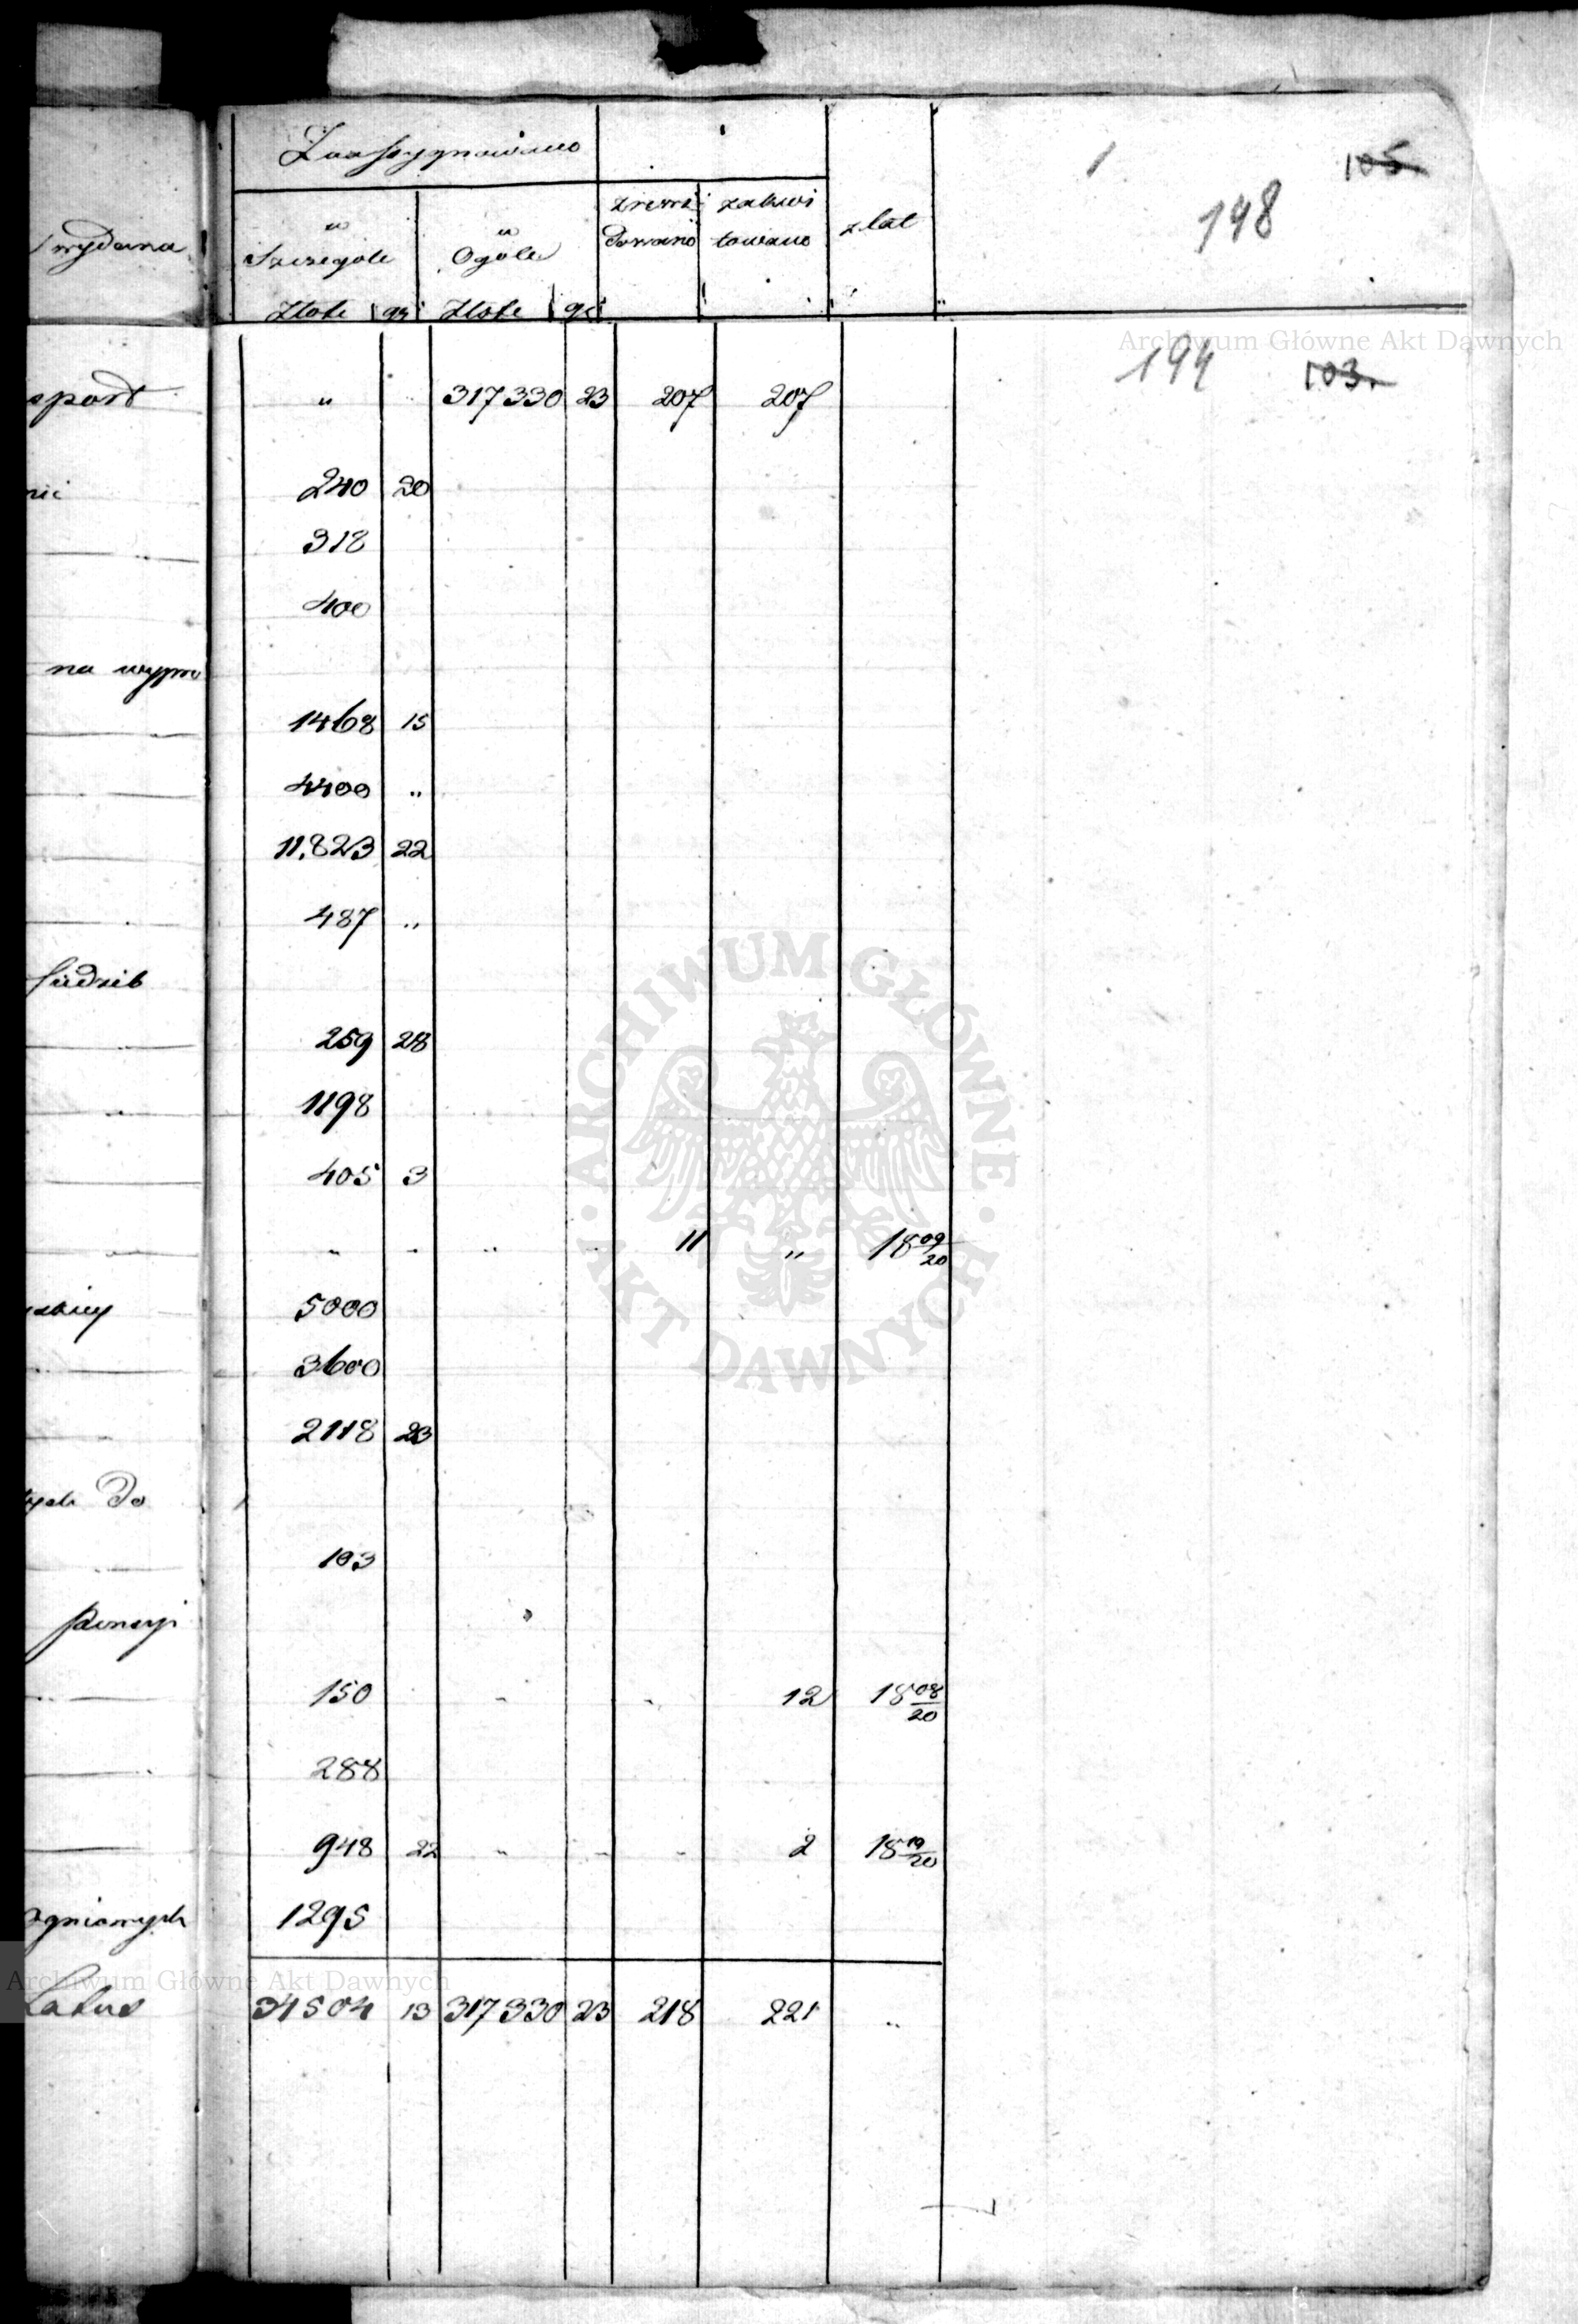 105
1
Zaassygnowano
148
wydana
w Szczególe
w Ogóle
zrewi dowano
zakwi towano
z lat
Złote gr Złote gr
Archiwum Główne Akt Dawnych
194 103.
sport " 317330 23 207 207
240 20
312
400
na wypro
1468 15
4400 "
11,823 22
487 "
ARCHIWUM GŁÓWNE AKT DAWNYCH
259 28
1198
405 3
" " " " 11 " 18 09/20
5000
3600
2118 23
tych do
103
pensyi
150 " " 12 18 08/20
288
948 22 " " " 2 18 19/20
ogniowych 1295
Archiwum Główne Akt Dawnych
Latus 34504 13 317330 23 218 221 "